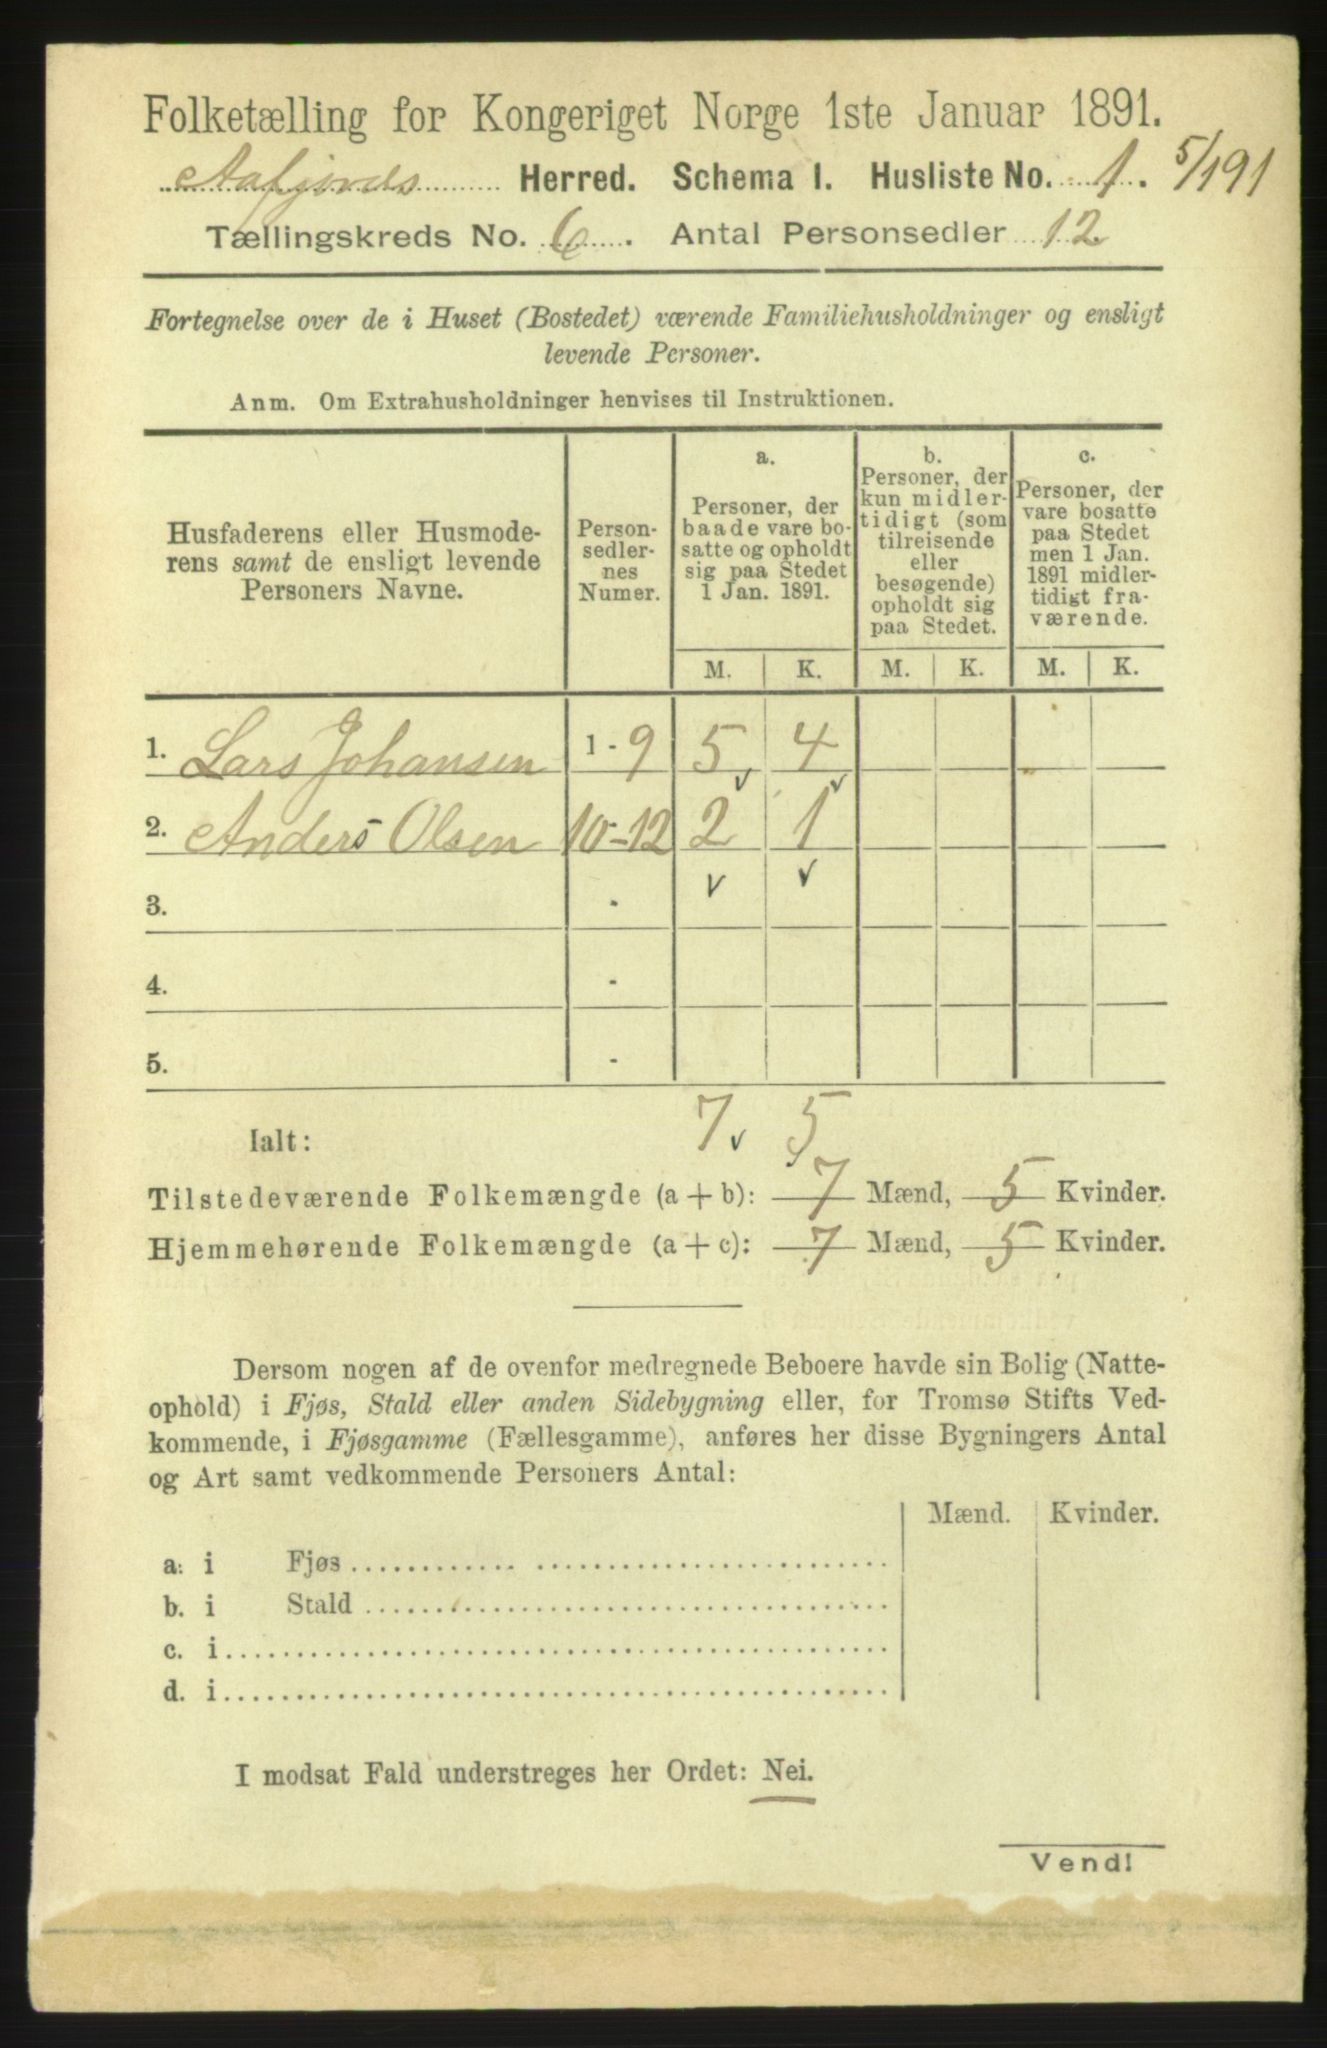 Folketælling for Kongeriget Norge 1ste Januar 1891.
Aafjords Herred. Schema I. Husliste No. 1. 5/191
Tællingskreds No. 6. Antal Personsedler 12
Fortegnelse over de i Huset (Bostedet) værende Familiehusholdninger og ensligt
levende Personer.
Anm. Om Extrahusholdninger henvises til Instruktionen.
Husfaderens eller Husmode-
rens samt de ensligt levende
Personers Navne.
Person-
sedler-
nes
Numer.
a.
Personer, der
baade vare bo-
satte og opholdt
sig paa Stedet
1 Jan. 1891.
b.
Personer, der
kun midler-
tidigt (som
tilreisende
eller
besøgende)
opholdt sig
paa Stedet.
c.
Personer, der
vare bosatte
paa Stedet
men 1 Jan.
1891 midler-
tidigt fra-
værende.
M. K. M. K. M. K.
1. Lars Johansen 1 - 9 5 4
2. Anders Olsen 10-12 2 1
3. -
4. -
5. -
Ialt: 7 5
Tilstedeværende Folkemængde (a + b): 7 Mænd, 5 Kvinder.
Hjemmehørende Folkemængde (a + c): 7 Mænd, 5 Kvinder.
Dersom nogen af de ovenfor medregnede Beboere havde sin Bolig (Natte-
ophold) i Fjøs, Stald eller anden Sidebygning eller, for Tromsø Stifts Ved-
kommende, i Fjøsgamme (Fællesgamme), anføres her disse Bygningers Antal
og Art samt vedkommende Personers Antal:
Mænd. Kvinder.
a. i Fjøs
b. i Stald
c. i
d. i
I modsat Fald understreges her Ordet: Nei.
Vend!